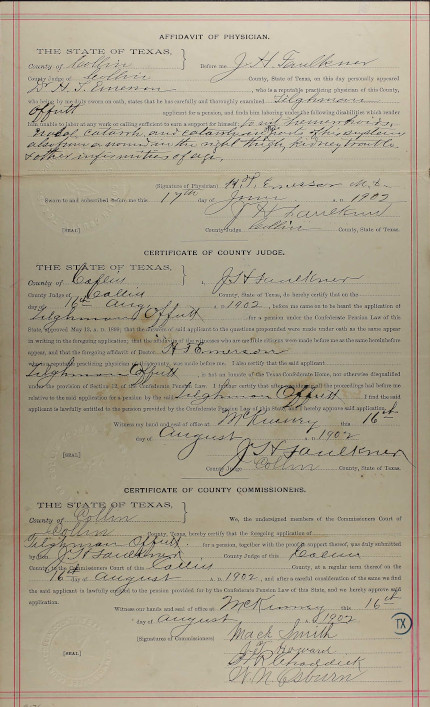 AFFIDAVIT OF PHYSICIAN.
THE STATE OF TEXAS,
County of Collin Before me J H Faulkner
County Judge of Collin County, State of Texas, on this day personally appeared
Dr H. T. Emerson, who is a reputable practicing physician of this County,
who being by me duly sworn on oath, states that he has carefully and thoroughly examined Tilghman
Offutt applicant for a pension, and finds him laboring under the following disabilities which render
him unable to labor at any work or calling sufficient to earn a support for himself:
Nasal catarrh, and catarrh
also from a wound in the right thigh, Kidney trouble
& other infirmities of age.
(Signature of Physician) H. T. Emerson M.D.
Sworn and subscribed before me this 17th day of June A. D. 1902
J H Faulkner
[SEAL] County Judge Collin County, State of Texas.
CERTIFICATE OF COUNTY JUDGE.
THE STATE OF TEXAS,
County of Collin I, J H Faulkner
County Judge of Collin County, State of Texas, do hereby certify that on the
day 16th August 1902, before me came on to be heard the application of
Tilghman Offutt for a pension under the Confederate Pension Law of this
State, approved May 12, A. D. 1899; that the answers of said applicant to the questions propounded were made under oath as the same appear
in writing in the foregoing application; that the affidavits of the witnesses who are credible citizens were made before me as the same herein
appear, and that the foregoing affidavit of Doctor H T Emerson
who is a regular practicing physician of this county, was made before me. I also certify that the said applicant
Tilghman Offutt, is not an inmate of the Texas Confederate Home, nor otherwise disqualified
under the provision of Confederate Pension Law. I further certify that after all the proceedings had before me
relative to the said application for a pension by the said Tilghman Offutt I find the said
applicant is lawfully entitled to the pension provided by the Confederate Pension Law of this State, and hereby approve said application.
Witness my hand and seal of office at McKinney this 16th
day of August A. D. 1902
J H Faulkner
[SEAL] County Judge Collin County, State of Texas.
CERTIFICATE OF COUNTY COMMISSIONERS.
THE STATE OF TEXAS,
County of Collin We, the undersigned members of the Commissioners Court of
Collin County, Texas, hereby certify that the foregoing application of
Tilghman Offutt for a pension, together with the proofs in support thereof, was duly submitted
by Hon. J H Faulkner County Judge of this Collin
County, to the Commissioners Court of this Collin County, at a regular term thereof on the
16th day of August A. D. 1902, and after a careful consideration of the same we find
the said applicant is lawfully entitled to the pension provided for by the Confederate Pension Law of this State, and we hereby approve said
application.
Witness our hands and seal of office at McKinney this 16th
day of August A. D. 1902
TX
(Signatures of Commissioners) Mack Smith
[SEAL]
W. N. Osburn